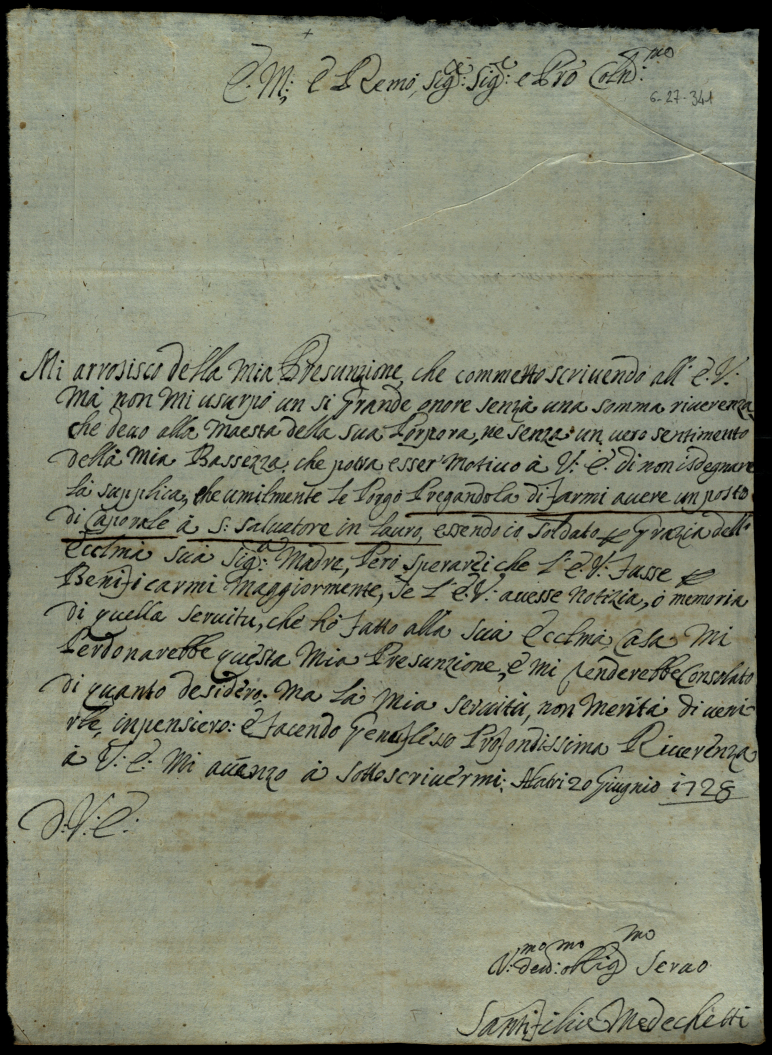 E.mo e R.emo Sig.re Sig.re e Pro Coln.mo
6-27-341
Mi arrosisco della mia Presunzione, che commetto scrivendo all' E. V:
mà non mi usurpo un si grande onore senza una somma riverenza,
che devo alla Maestà della sua Porpora, ne senza un vero sentimento
della mia Bassezza, che possa esser motivo à V: E: di non isdegnare
la supplica, che umilmente le Porgo Pregandola di farmi avere un posto
di Caporale à S: Salvatore in Lauro, essendo io soldato p Grazia dell'
Ecclma sua Sig:a Madre, Però sperarei che L' E: V: fusse p
Benificarmi Maggiormente, se L' E: V: avesse Notizia, ò memoria
di quella servitu, che hò fatto alla sua Ecclma Casa mi
Perdonarebbe questa mia Presunzione, è mi renderebbe Consolato
di quanto desidero: Ma la mia servitù, non merita di veni-
rle, inpensiero: è facendo Genuflesso Profondissima Riverenza
à V: E: mi avanzo à sottoscrivermi; 20 Giugnio 1728
D: V: E:
V:mo devo:mo oblig:mo Servo
Santi Medechetti